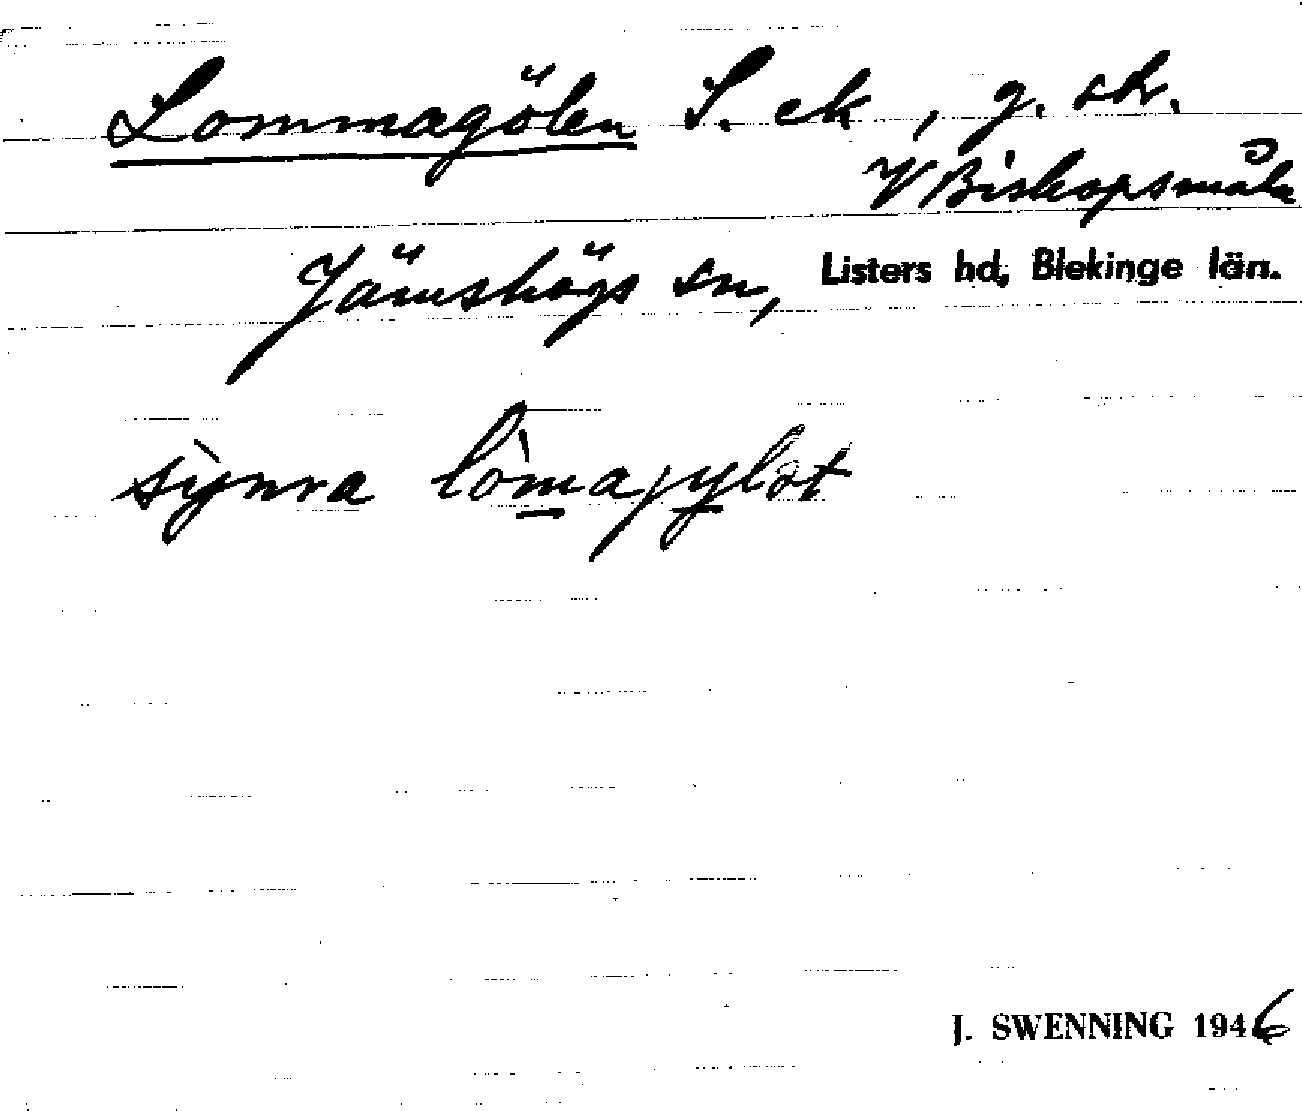 Lommagölen S. ek, g. skr.
V Biskopsmåla
Jämshögs sn, Listers hd, Blekinge län.
sỳnra lòmagylət
J. SWENNING 1946